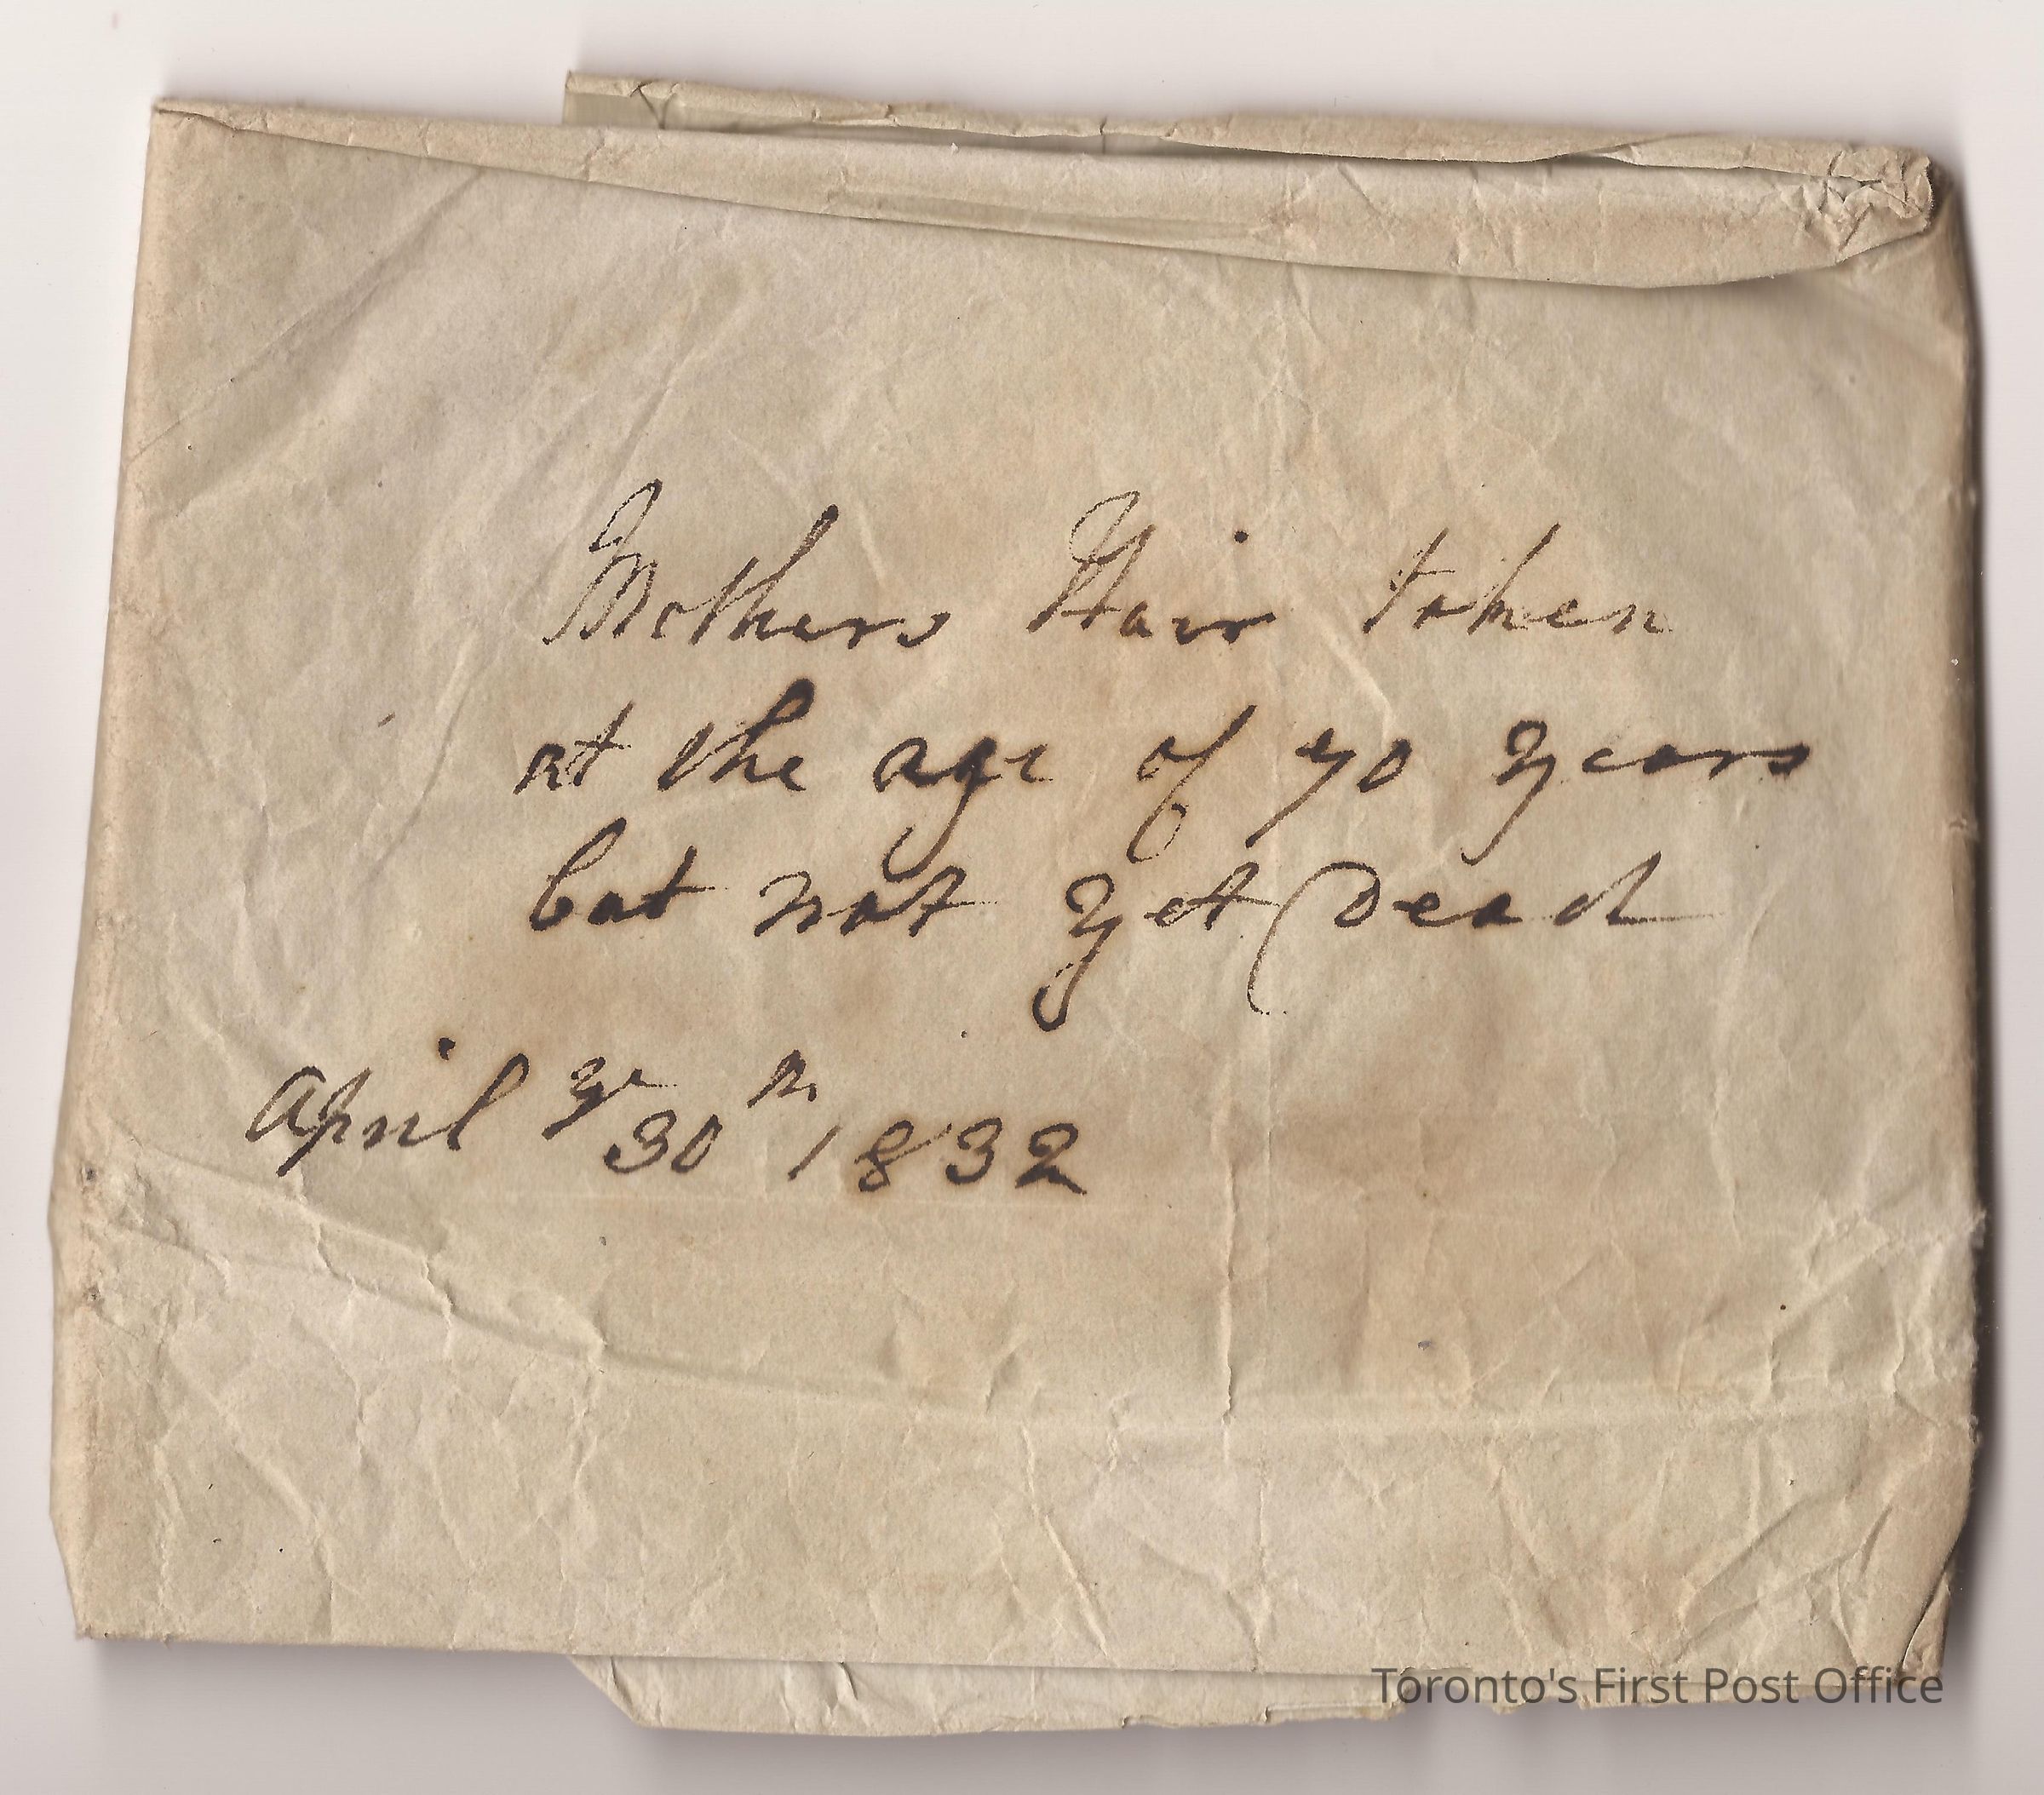 Mothers Hair taken
at the age of 70 years
but not yet Dead
April ye 30th 1832
Toronto's First Post Office